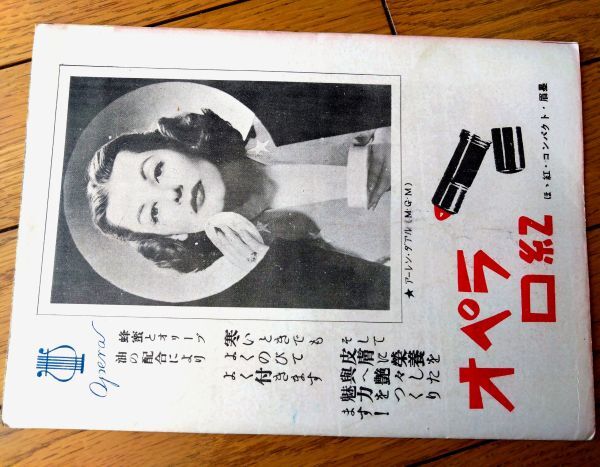 オペラ
口紅
ほゝ紅・コンパクト・眉墨
★アーレン・ダアル(M・G・M)
Opera
蜂蜜とオリーブ
油の配合により
寒いときでも
よくのびて
よく付きます
そして
皮膚に栄養を
與へ艶々した
魅力をつくり
ます!